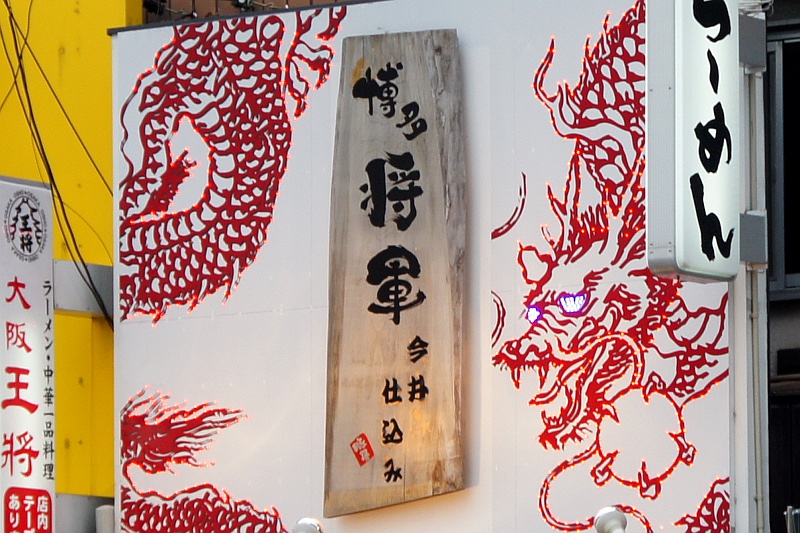 博多
将軍
今井
仕込み
らーめん
王将
大阪王将
ラーメン・中華一品料理
店内
テー
あり